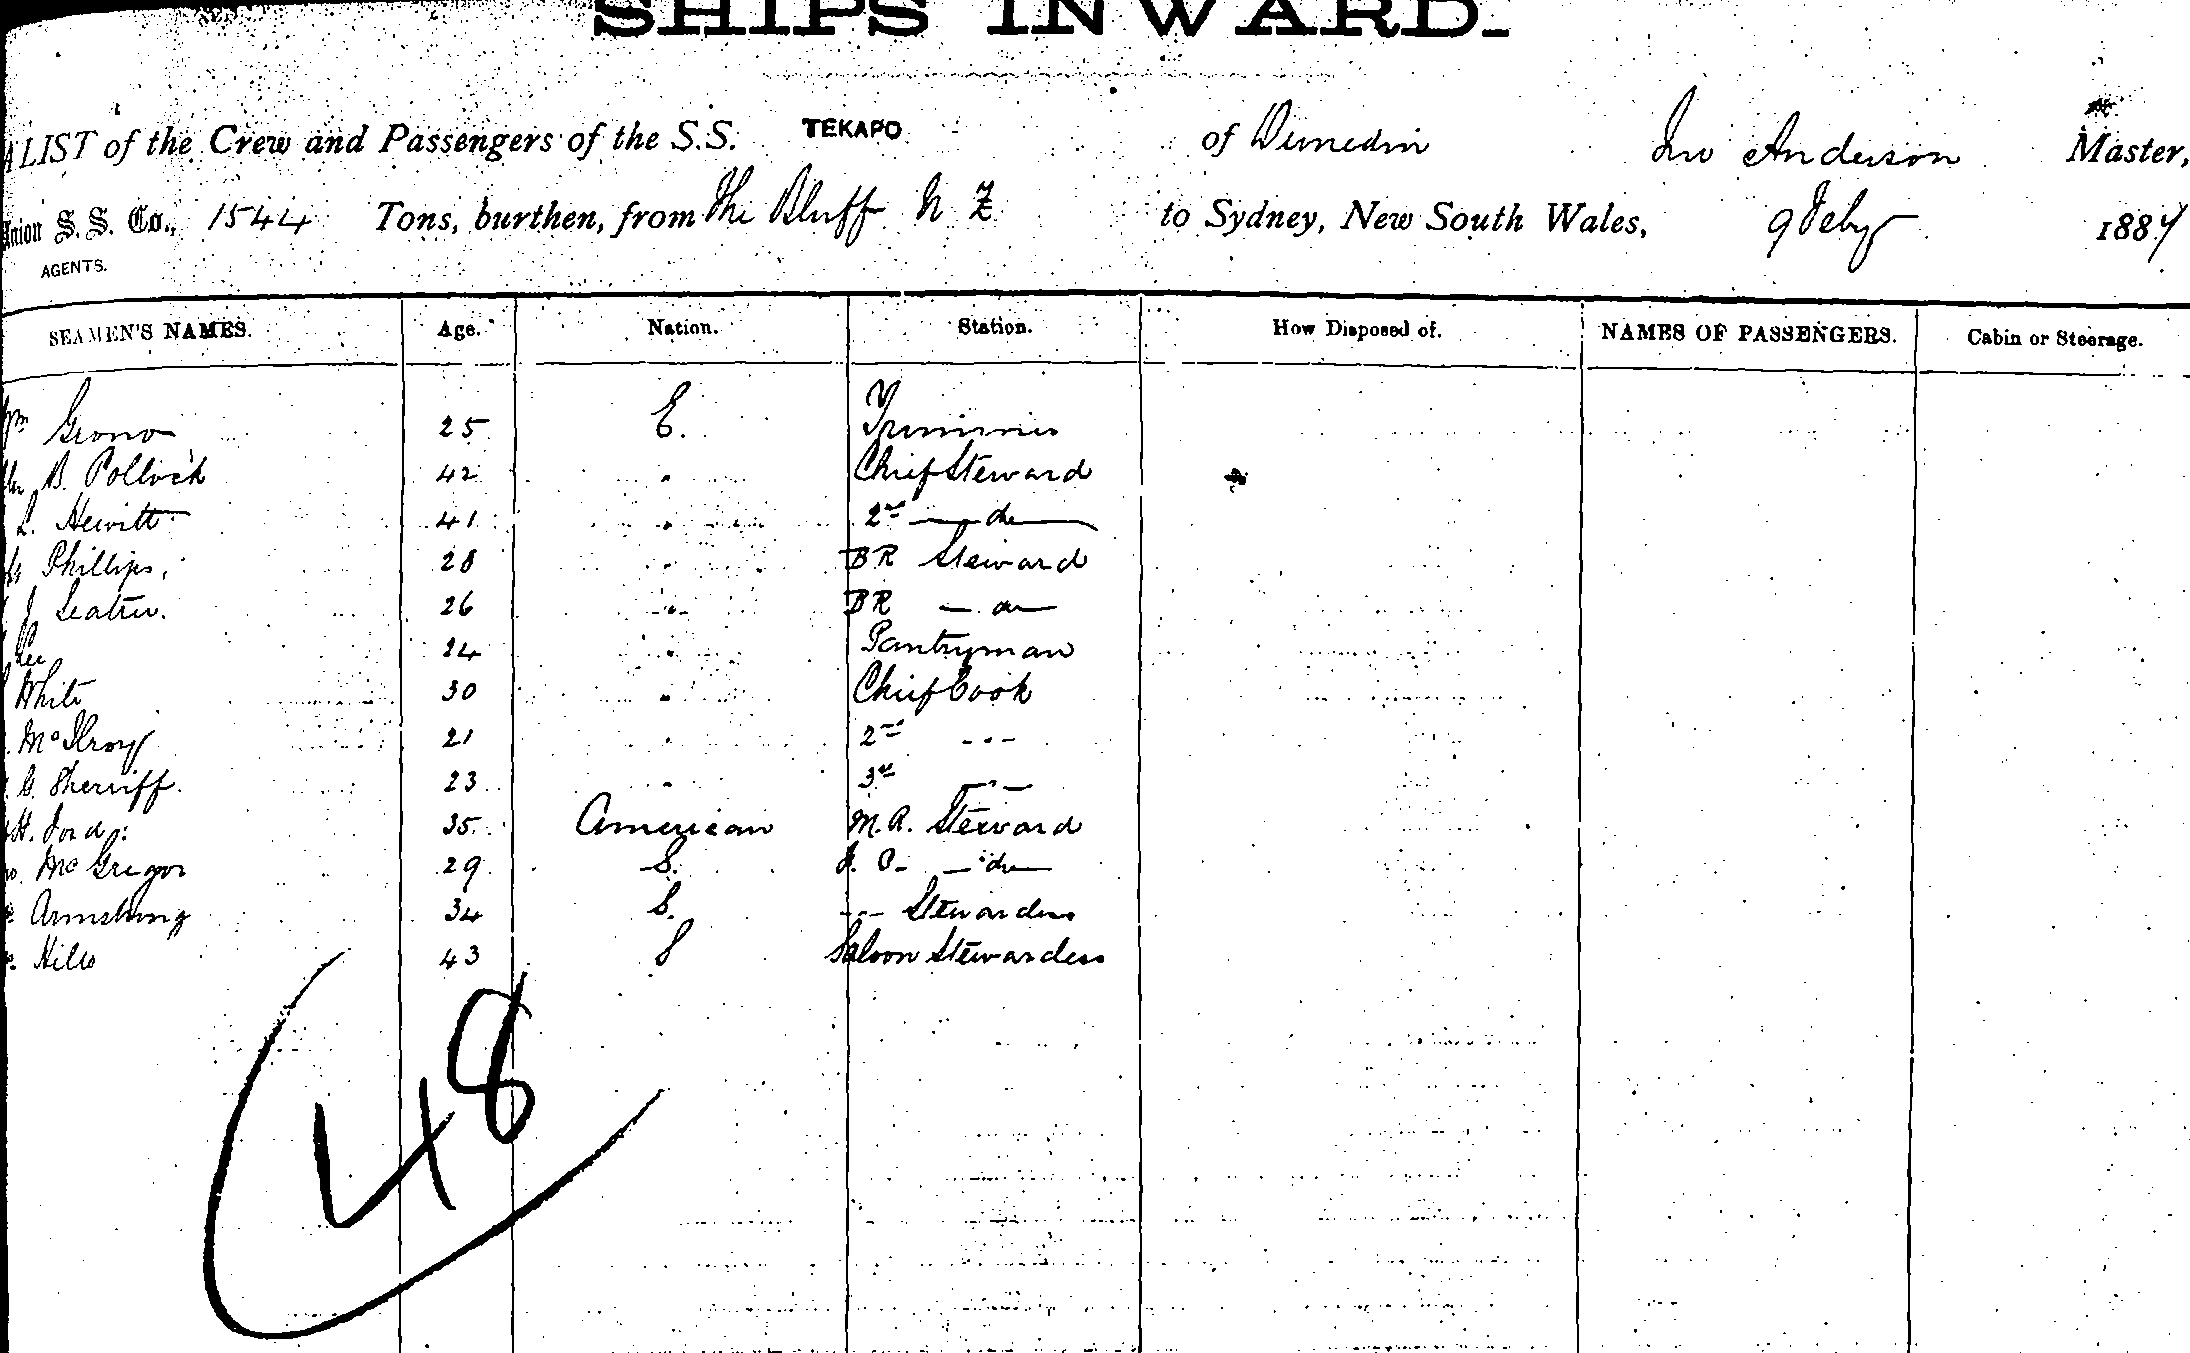 SHIPS INWARD.
A LIST of the Crew and Passengers of the S.S. TEKAPO of Dunedin Jno Anderson Master,
Union S. S. Co., 1544 Tons, burthen, from The Bluff N Z to Sydney, New South Wales, 9 Feby 1887
AGENTS.
SEAMEN'S NAMES. Age. Nation. Station. How Disposed of. NAMES OF PASSENGERS. Cabin or Steerage.
Wm Grono 25 E. Trimmer
B. Pollock 42 " Chief Steward
L. Hewitt 41 " 2nd — do —
Phillips, 28 " BR Steward
J. 26 " BR — do —
Lee 24 " Pantryman
White 30 " Chief Cook
McIlroy 21 " 2nd "
G. Sherriff. 23 " 3rd — " —
H. Ford 35 American M.R. Steward
McGregor 29 S. — do —
Armstrong 34 S. Stewardess
43 S Saloon Stewardess
48